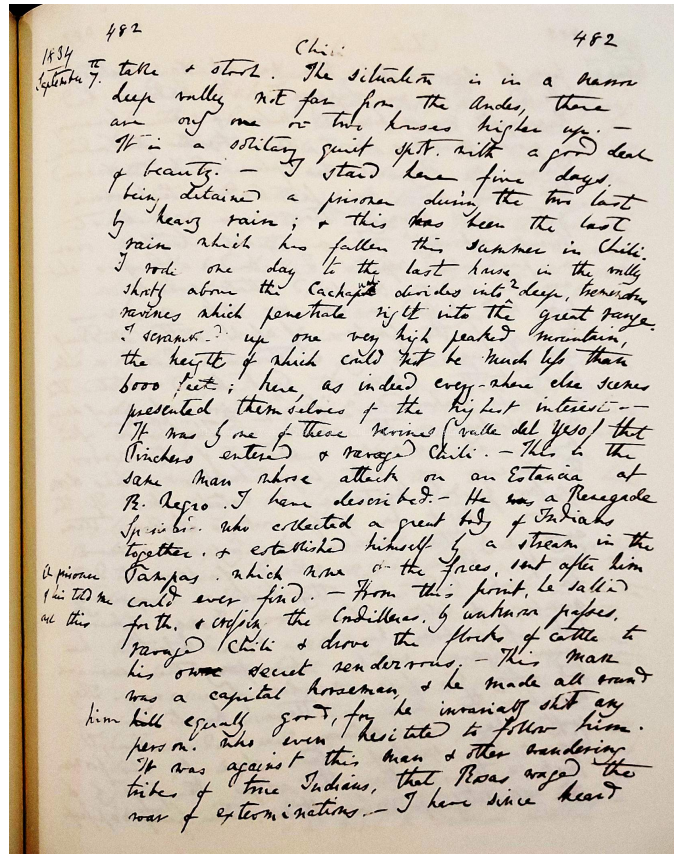 482
482
Chili
1834
September 7th. take & stock. The situation is in a narrow
deep valley not far from the Andes, there
are only one or two houses higher up. —
It is a solitary quiet spot. with a good deal
of beauty. — I staid here five days,
being detained a prisoner during the two last
by heavy rain; & this has been the last
rain which has fallen this summer in Chili.
I rode one day to the last house in the vally
shortly above the Cachapual divides into 2 deep, tremendous
ravines which penetrate right into the great range.
I scrambled up one very high peaked mountain,
the height of which could not be much less than
6000 feet; here, as indeed every-where else scenes
presented themselves of the highest interest —
It was by one of these ravines (valle del Yeso) that
Pinchero entered & ravaged Chili. — This is the
same man whose attack on an Estancia at
R. Negro I have described. — He was a Renegade
Spaniard who collected a great body of Indians
together. & established himself by a stream in the
Pampas. which none of the forces, sent after him
A prisoner
of his told me
all this
could ever find. — From this point, he sallied
forth, & crossing the Cordilleras, by unknown passes,
ravaged Chili & drove the flocks of cattle to
his own secret rendezvous. — This man
was a capital horseman, & he made all round
him kill equally good, for he invariably shot any
person. who even hesitated to follow him.
It was against this man & other wandering
tribes of true Indians, that Rosas waged the
war of exterminations. — I have since heard